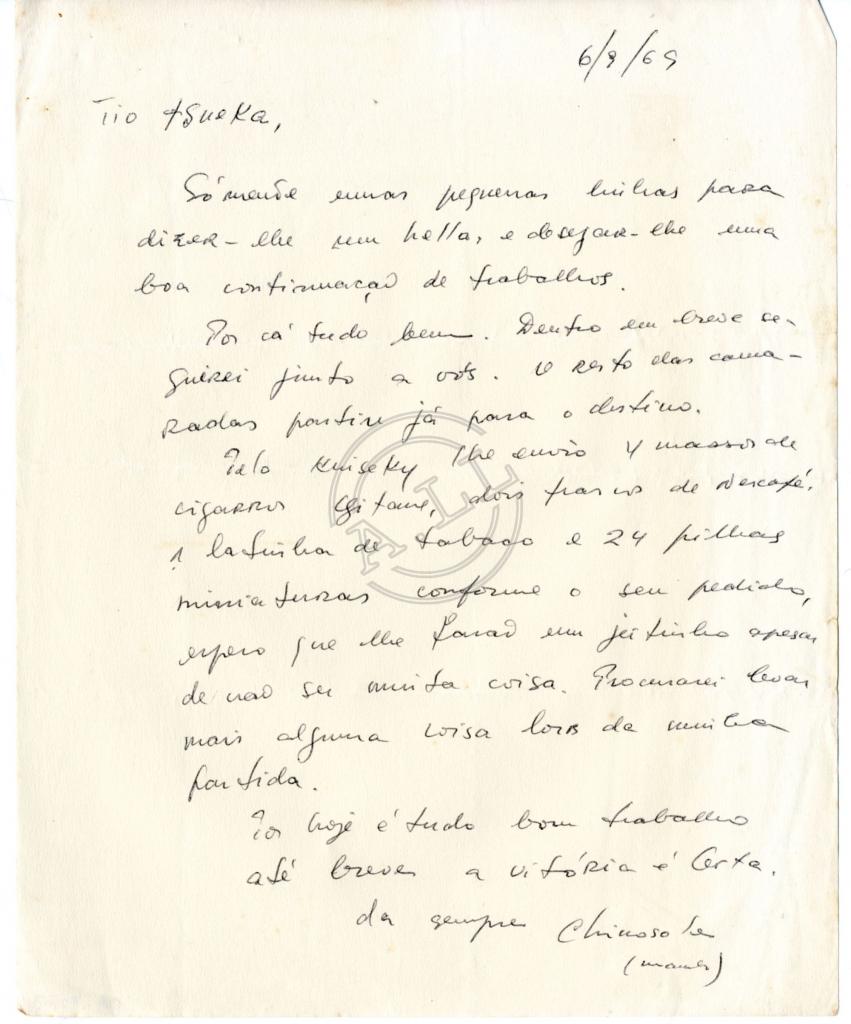 6/9/69
Tio
Sómente umas pequenas linhas para
dizer-lhe um hello, e desejar-lhe uma
boa continuação de trabalhos.
Por cá tudo bem. Dentro em breve se-
guirei junto a vós. O resto das cama-
radas partiu já para o destino.
Pelo Kuiseky lhe envio 4 massos de
cigarros Gitane, dois frascos de Nescafé,
1 latinha de tabaco e 24 pilhas
miniaturas conforme o seu pedido,
espero que lhe farão um jeitinho apesar
de não ser muita coisa. Procurarei levar
mais alguma coisa da minha
partida.
Por hoje é tudo bom trabalho
até breve a vitória é Certa.
da sempre
ALL